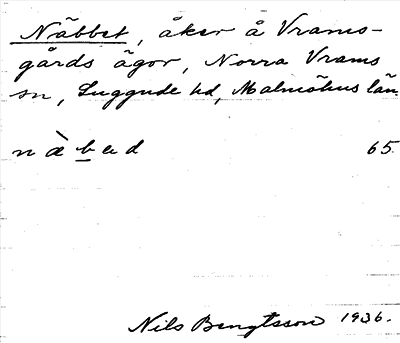 Näbbet, åker å Vrams-
gårds ägor, Norra Vrams
sn, Luggude hd, Malmöhus län.
n æ̀ b a d 65.
Nils Bengtsson 1936.